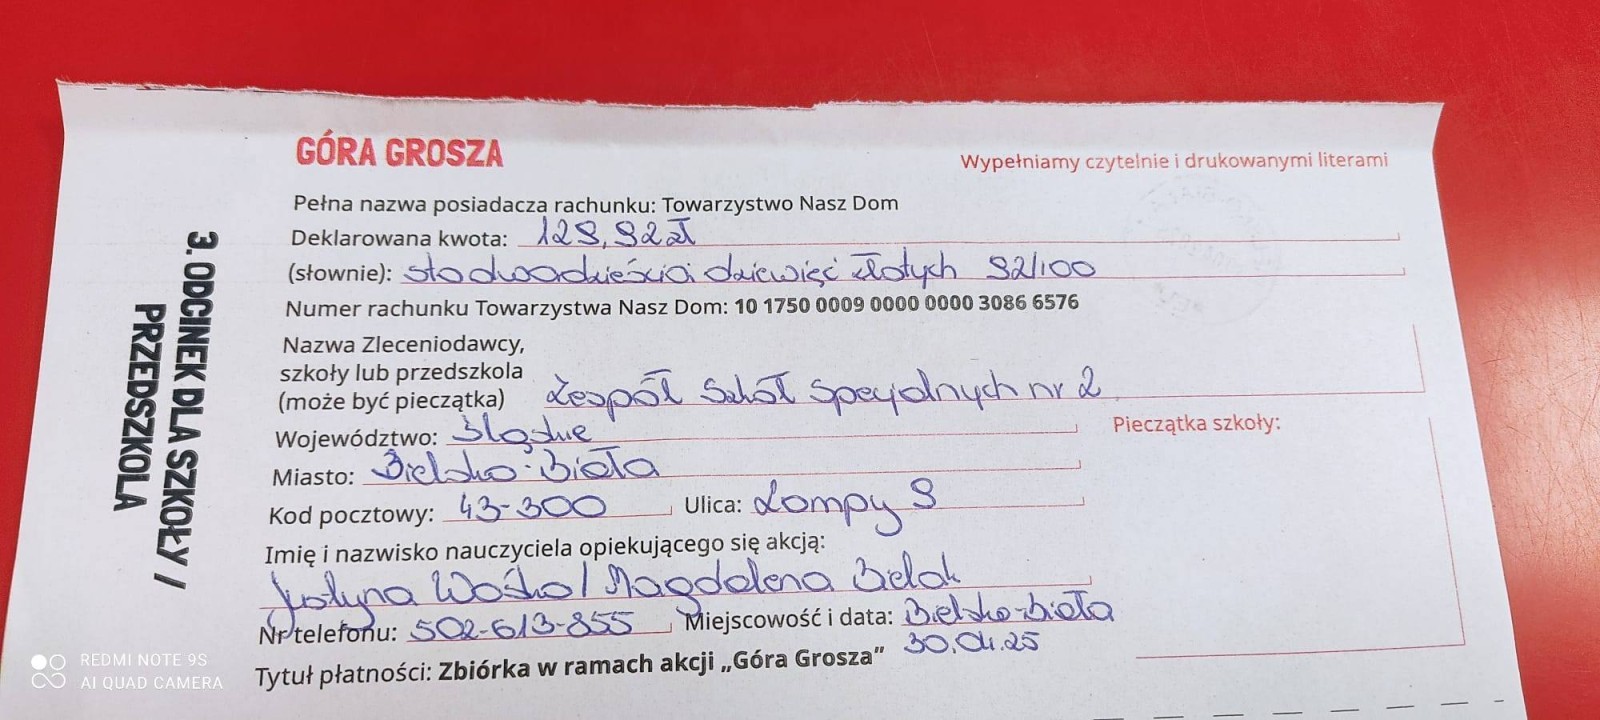 GÓRA GROSZA
Wypełniamy czytelnie i drukowanymi literami
Pełna nazwa posiadacza rachunku: Towarzystwo Nasz Dom
Deklarowana kwota: 129,92 zł
(słownie): sto dwadzieścia dziewięć złotych 92/100
Numer rachunku Towarzystwa Nasz Dom: 10 1750 0009 0000 0000 3086 6576
Nazwa Zleceniodawcy,
szkoły lub przedszkola
(może być pieczątka) Zespół Szkół Specjalnych nr 2
Województwo: Śląskie
Pieczątka szkoły:
Miasto: Bielsko-Biała
Kod pocztowy: 43-300 Ulica: Lompy 9
Imię i nazwisko nauczyciela opiekującego się akcją:
Justyna Waśko / Magdalena Bielak
Nr telefonu: 502-613-855 Miejscowość i data: Bielsko-Biała
30.04.25
Tytuł płatności: Zbiórka w ramach akcji „Góra Grosza”
3. ODCINEK DLA SZKOŁY /
PRZEDSZKOLA
REDMI NOTE 9S
AI QUAD CAMERA